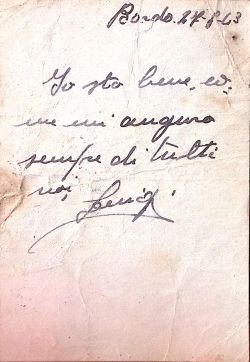 Bordo. 27-8-43
Io sto bene, co-
me mi auguro
sempre di tutti
noi,
Luigi.